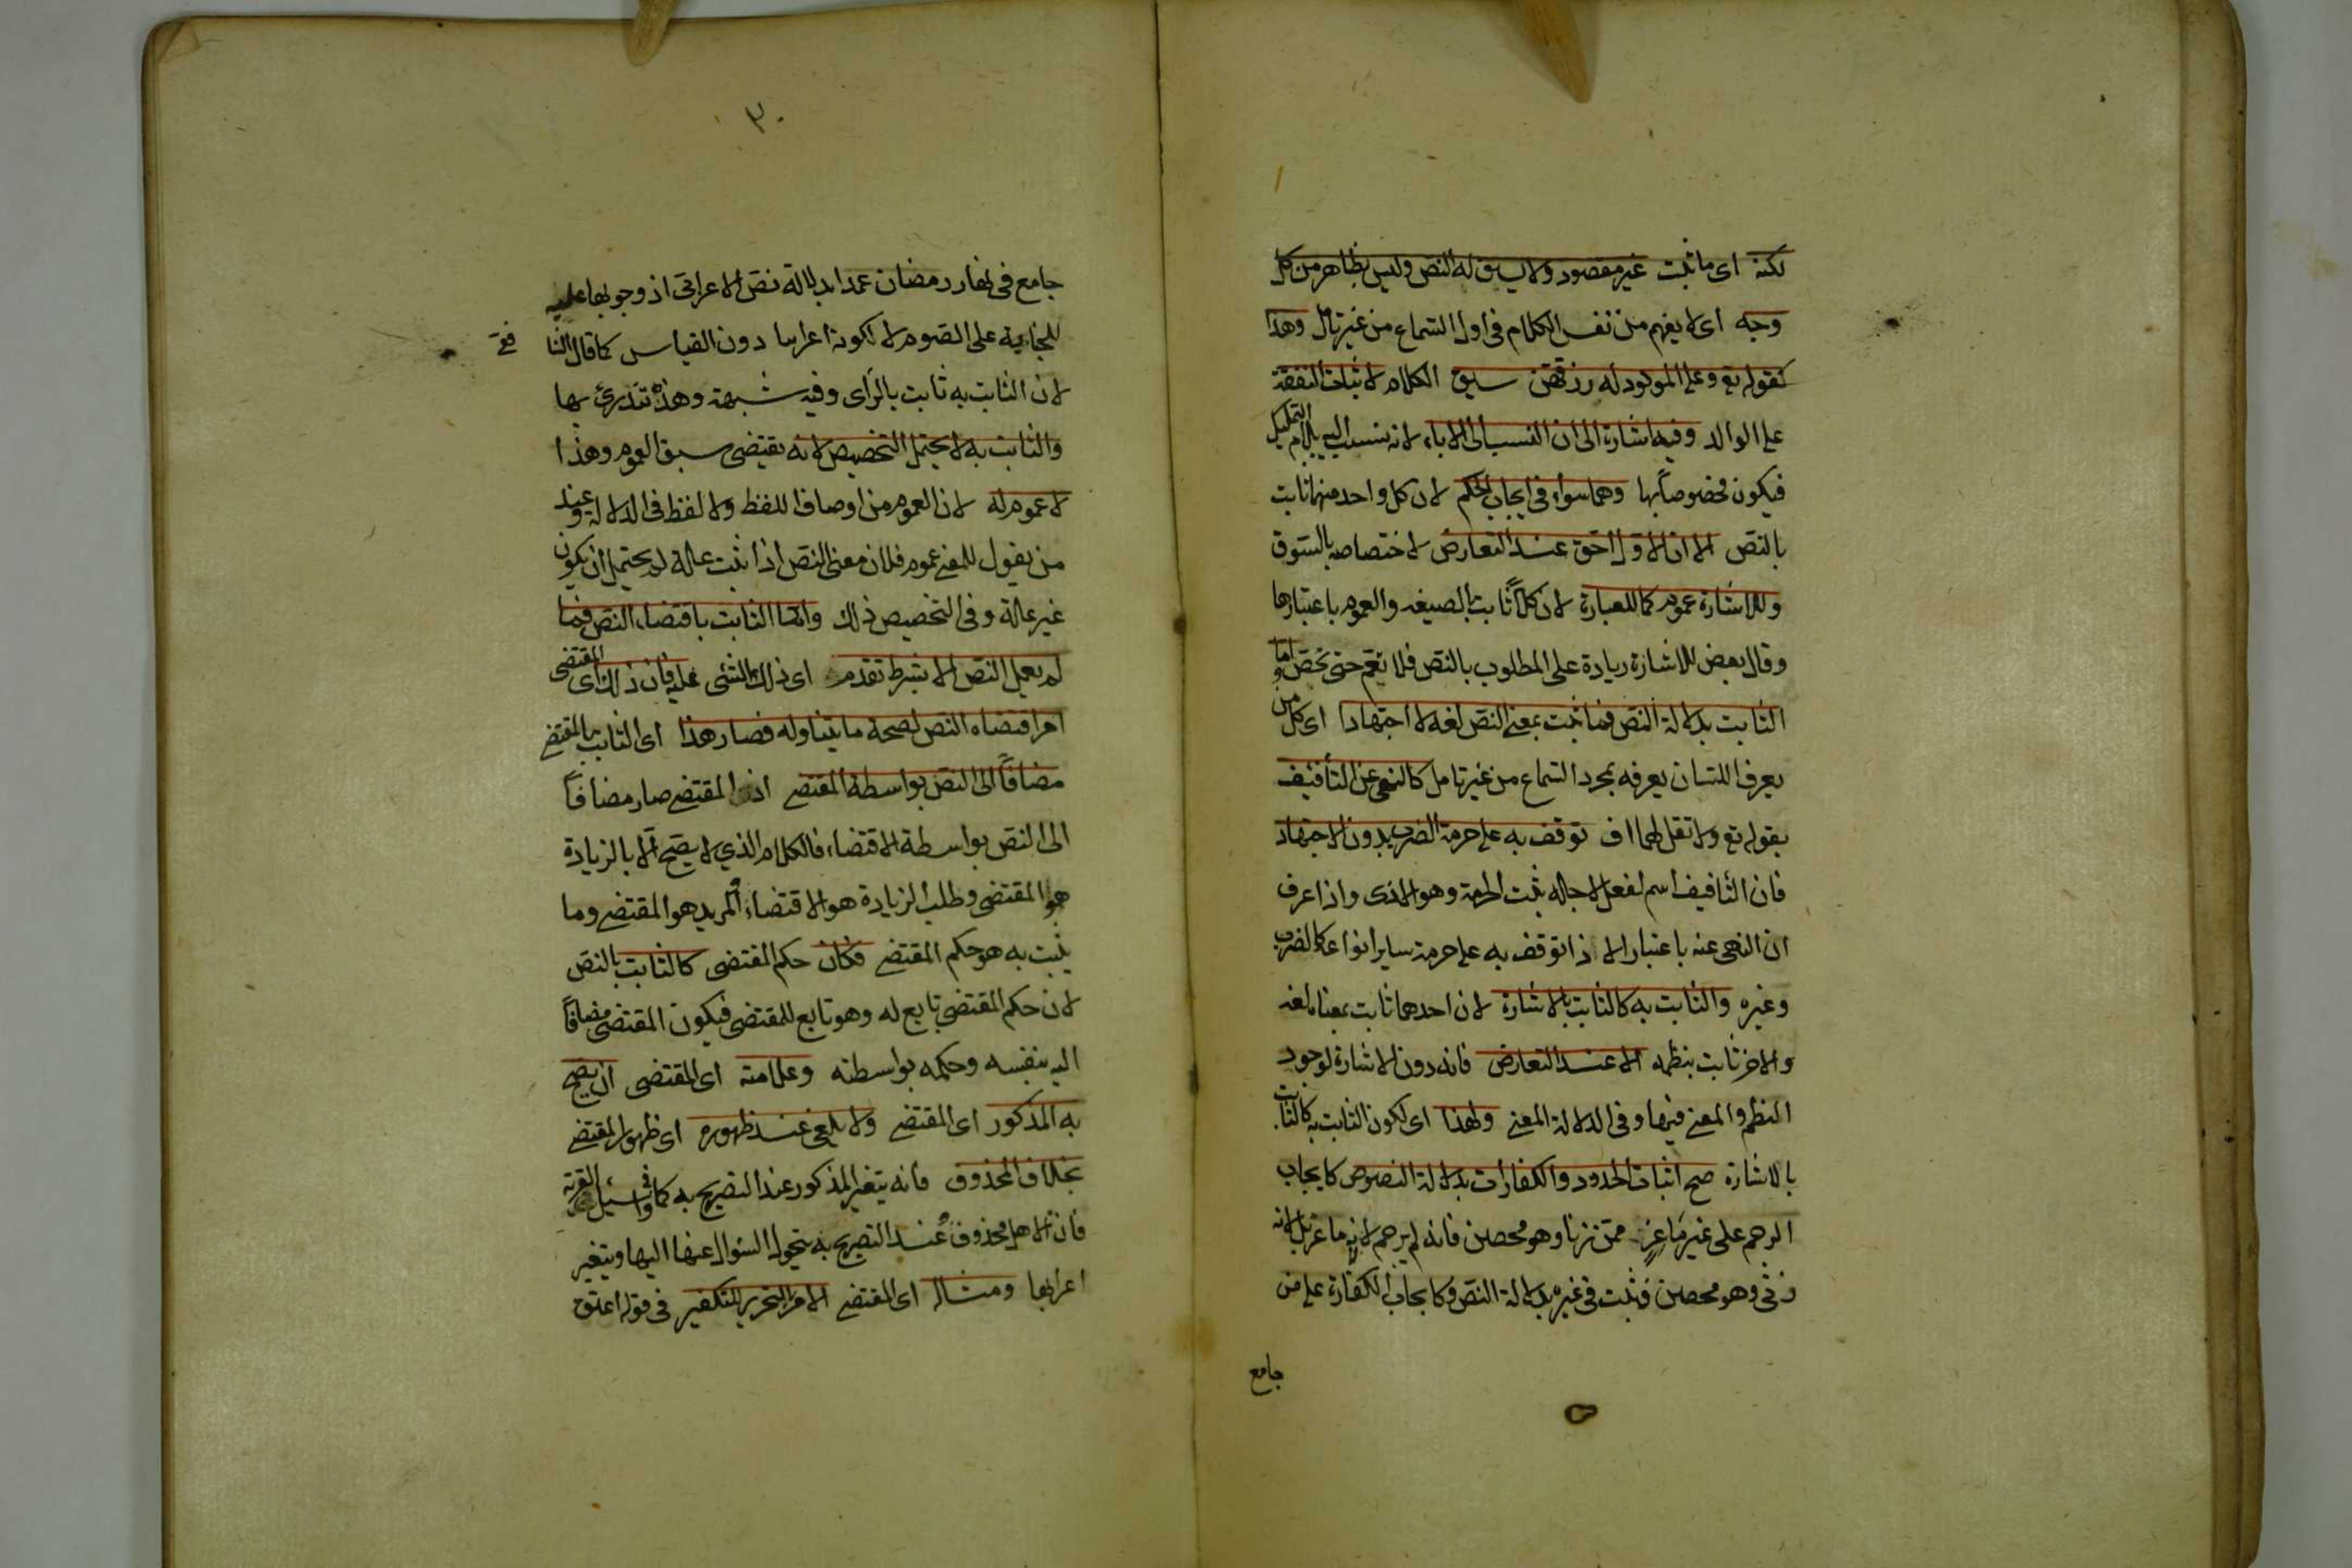 لكنه اى ما ثبت غير مقصود ولا سيق له النص وليس بظاهر من كل
وجه اى لا يفهم من نفس الكلام فى اول السماع من غير تامل وهذا
كقوله تع وعلى المولود له رزقهن سيق الكلام لاثبات النفقة
على الوالد وفيه اشارة الى ان النسب الى الاباء لانه نسب اليه بلام التمليك
فيكون مخصوصاً بها وهما سواء فى ايجاب الحكم لان كل واحد منهما ثابت
بالنص الا ان الاول احق عند التعارض لاختصاصه بالسوق
وللاشارة عموم كما للعبارة لان كلاً ثابت بالصيغه والعموم باعتبارها
وقال بعض للاشارة زيادة على المطلوب بالنص فلا تعم حتى تخص واما
الثابت بدلالة النص فما ثبت بمعنى النص لغة لا اجتهادا اى كل من
يعرف اللسان يعرفه بمجرد السماع من غير تامل كالنهى عن التأفيف
بقوله تع ولا تقل لهما اف توقف به على حرمة الضرب بدون الاجتهاد
فان التأفيف اسم لفعل لاجله ثبت الحرمة وهو الاذى واذا عرف
ان النهى عنه باعتبار الاذا توقف به على حرمة ساير انواعه كالضرب
وغيره والثابت به كالثابت بالاشارة لان احدهما ثابت بمعناه لغه
والاخر ثابت بنظمه الا عند التعارض فانه دون الاشارة لوجود
النظم والمعنى فيها وفى الدلالة المعنى ولهذا اى لكون الثابت به كالثابت
بالاشارة صح اثبات الحدود والكفارات بدلالة النصوص كايجاب
الرجم على غير ماعز ممن زنا وهو محصن فانه لم يرجم لانه ماعز بل لانه
زنى وهو محصن فثبت فى غيره بدلالة النص وكايجاب الكفارة على من
جامع
٣٠
جامع فى نهار رمضان عمدا بدلالة نص الاعرابى اذ وجوبها عليه
للجناية على الصوم لا لكونه اعرابيا دون القياس كما قال الشا
فعى
لان الثابت به ثابت بالرأى وفيه شبهة وهذه تندرئ بها
والثابت به لا يحتمل التخصيص لانه يقتضى سبق العموم وهذا
لا عموم له لان العموم من اوصاف اللفظ ولا لفظ فى الدلالة وعند
من يقول للمعنى عموم فلان معنى النص اذا ثبت علة لم يحتمل ان يكون
غير علة وفى التخصيص ذلك واما الثابت باقتضاء النص فما
لم يعمل النص الا بشرط تقدم اى ذلك الشى عليه فان ذلك اى المقتضى
امر اقتضاه النص لصحة ما يتناوله فصار هذا اى الثابت بالمقتضى
مضافاً الى النص بواسطة المقتضى اذ المقتضى صار مضافاً
الى النص بواسطة الاقتضاء فالكلام الذي لا يصح الا بالزيادة
هو المقتضى وطلب الزيادة هو الاقتضاء والمزيد هو المقتضى وما
يثبت به هو حكم المقتضى فكان حكم المقتضى كالثابت بالنص
لان حكم المقتضى تابع له وهو تابع للمقتضى فيكون المقتضى مضافاً
اليه بنفسه وحكمه بواسطته وعلامته اى المقتضى ان يصح
به المذكور اى المقتضى ولا يلغى عند ظهوره اى ظهور المقتضى
بخلاف المحذوف فانه يتغير المذكور عند التصريح به كما فى واسئل القرية
فان الاهل محذوف وعند التصريح به يتحول السؤال عنها اليها ويتغير
اعرابها ومثاله اى المقتضى الامر بالتحرير للتكفير فى قوله اعتق